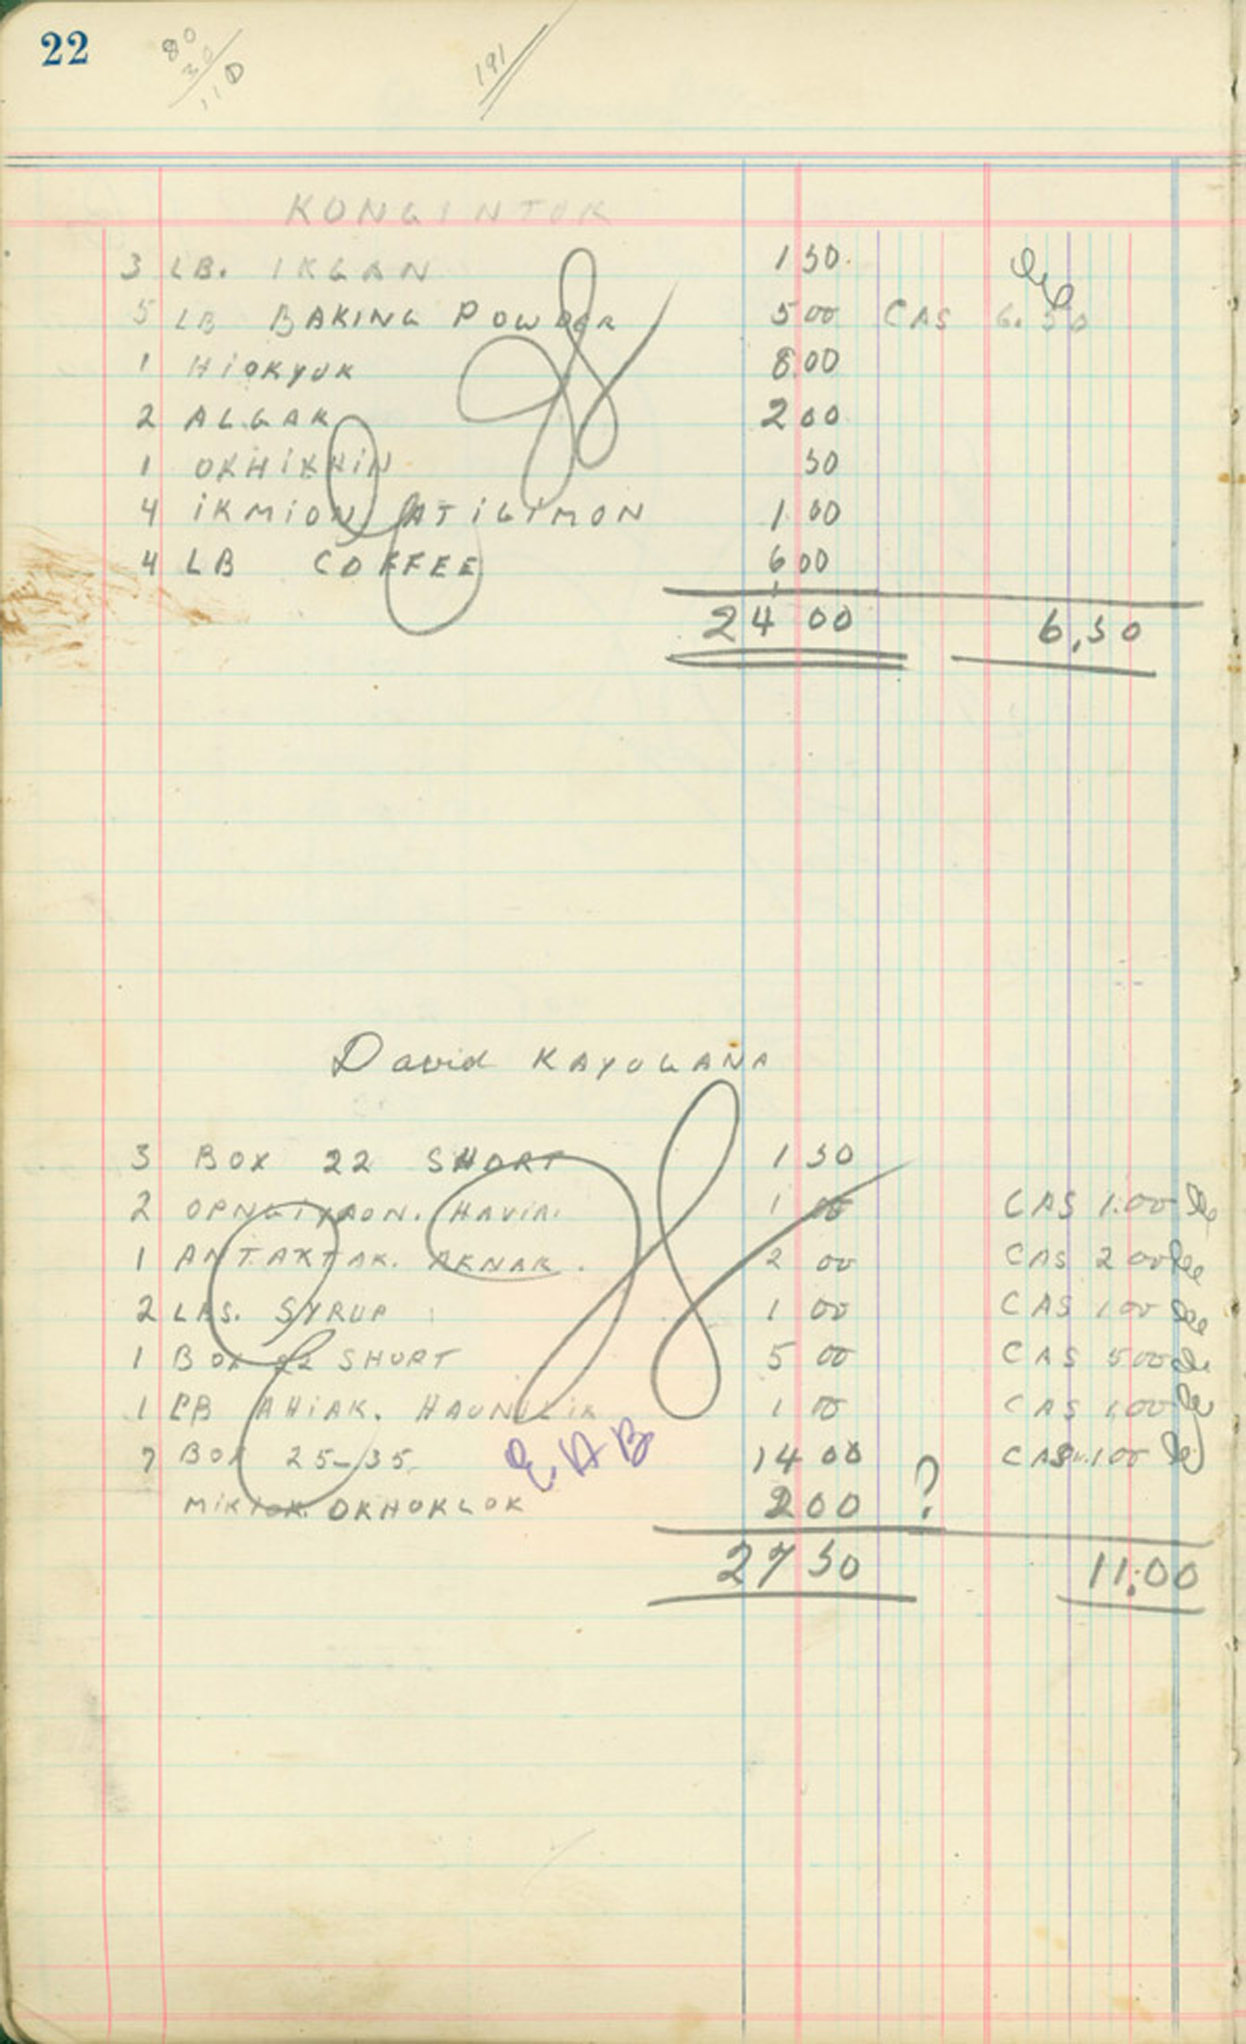 22
80
30
110
191
KONGINTUK
3 LB. IKGAN 1 50.
5 LB BAKING POWDER 5 00 CAS 6.50
1 HIOKYUK 8.00
2 ALGAK 2 00
1 OKHIKHIN 50
4 IKMION ATIGIMON 1 00
4 LB COFFEE 6 00
24 00 6.50
David KAYUGANA
3 BOX 22 SHORT 1 50
2 HAVIR. 1 00 CAS 1.00
1 ANTAKTAK. AKNAK. 2 00 CAS 2 00
2 LBS. SYRUP 1 00 CAS 1 00
1 BOX 22 SHORT 5 00 CAS 5 00
1 LB AHIAK. 1 00 CAS 1,00
7 BOX 25-35. 14 00 CAS 1 00
EAB
OKHOKLOK 2 00 ?
27 50 11.00